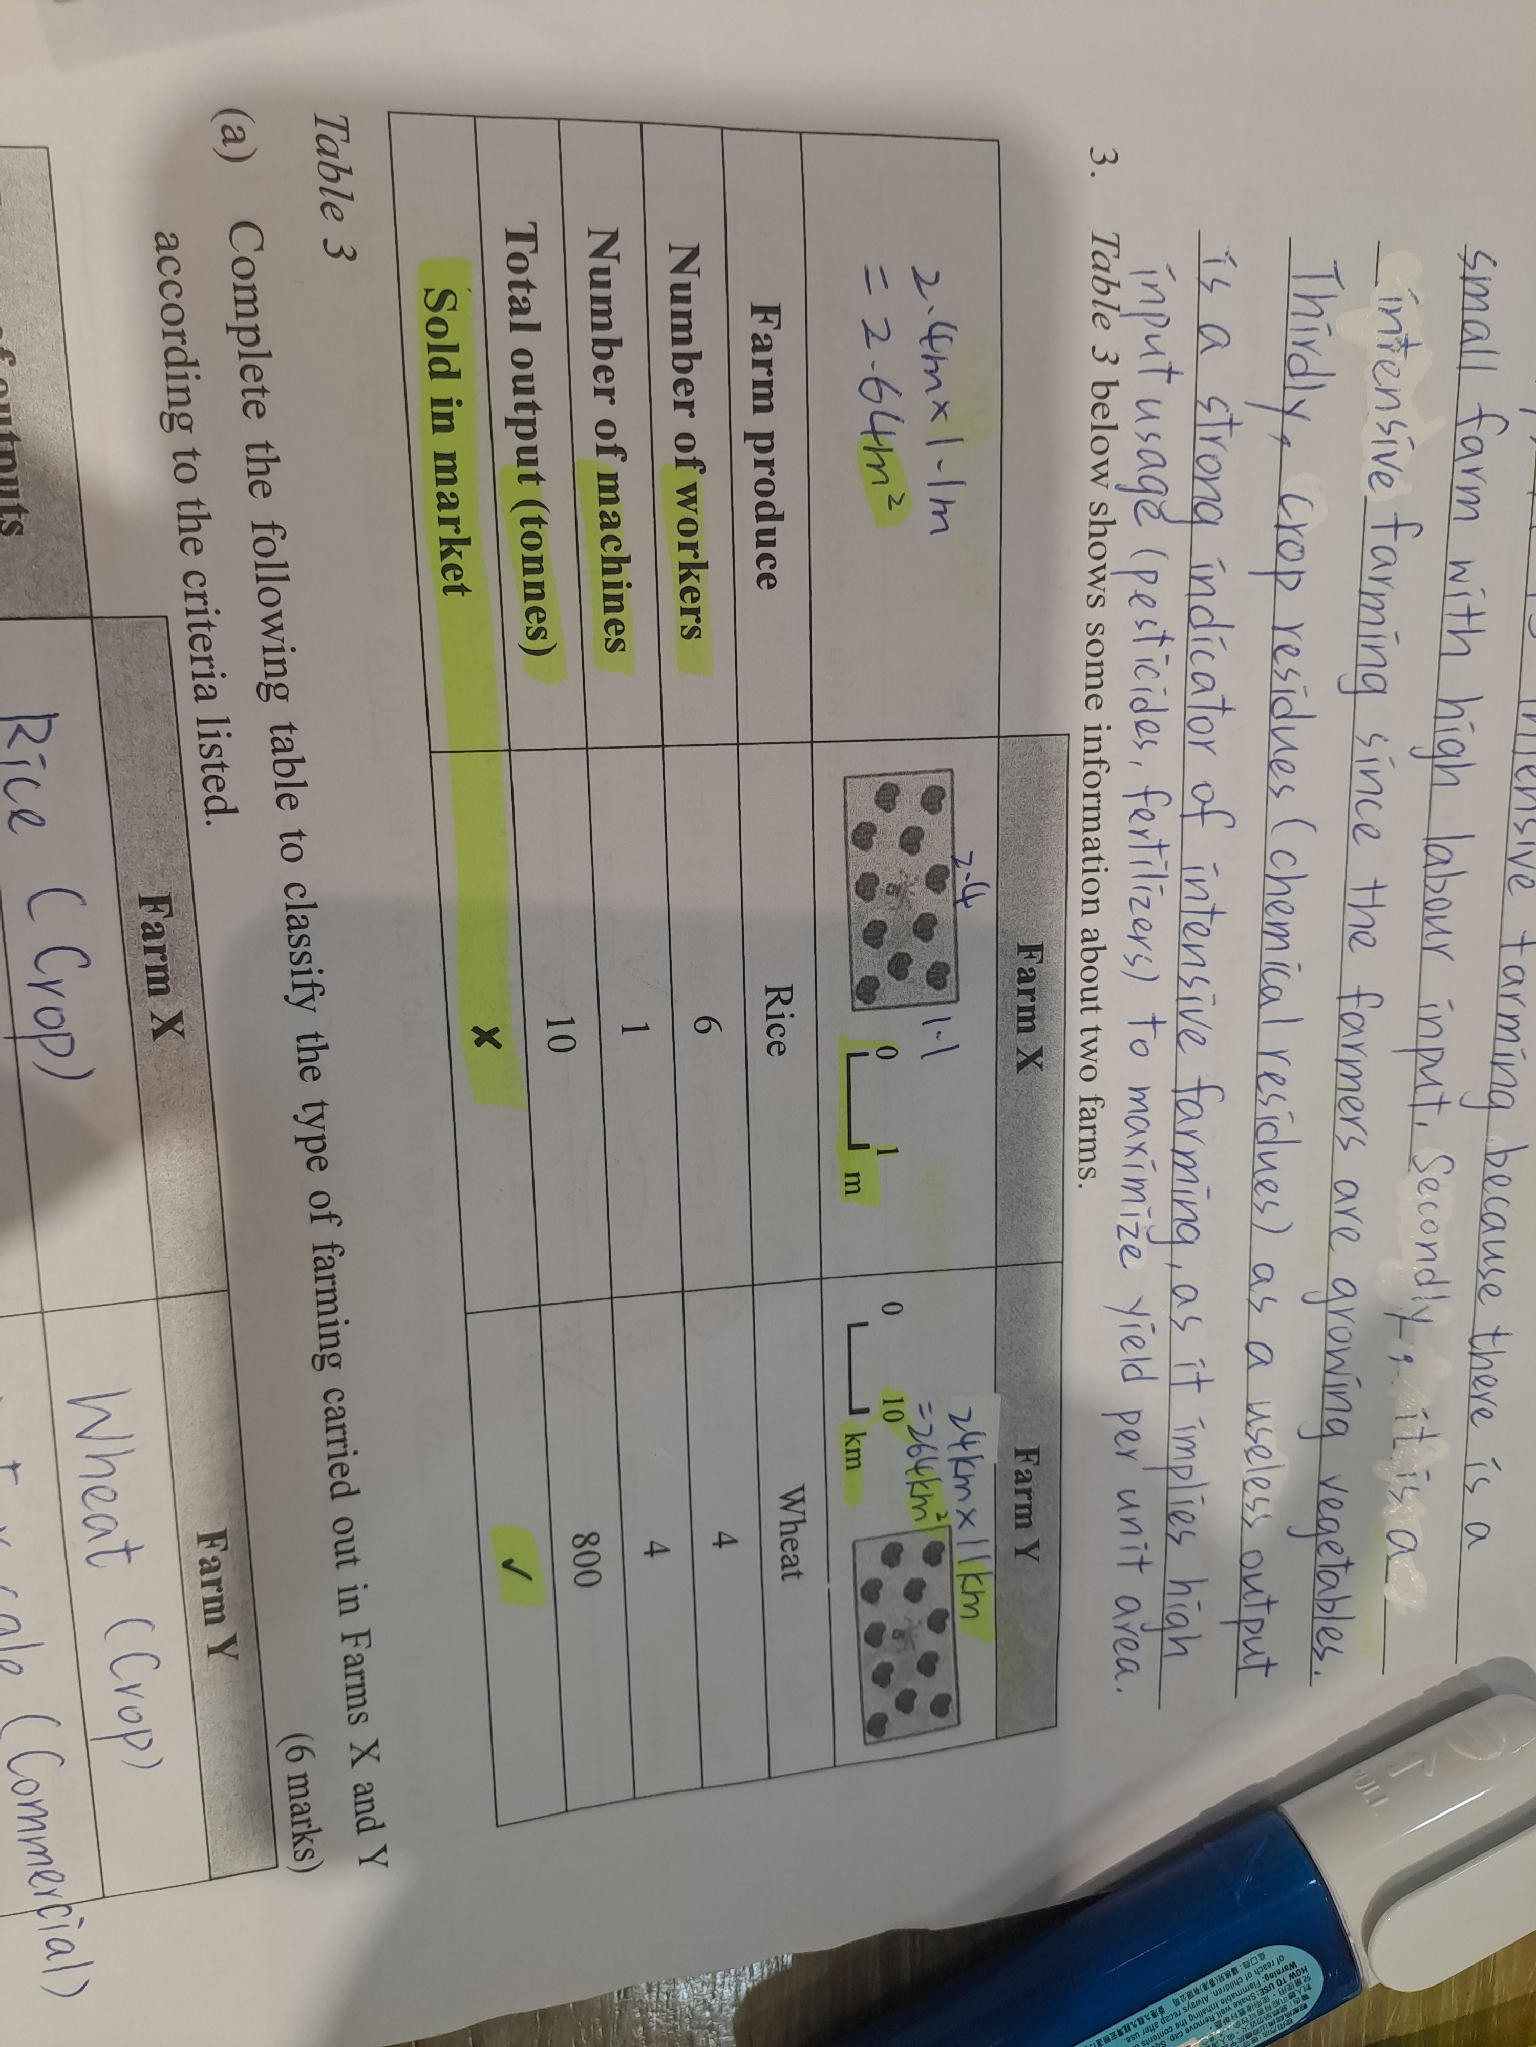 intensive farming because there is a
small farm with high labour input. Secondly, it is a
intensive farming since the farmers are growing vegetables.
Thirdly, crop residues (chemical residues) as a useless output
is a strong indicator of intensive farming, as it implies high
input usage (pesticides, fertilizers) to maximize yield per unit area.
3. Table 3 below shows some information about two farms.
Farm X Farm Y
2.4m×1.1m
= 2.64m²
2.4
1.1
0 1 m
24km×11km
=264km²
0 10 km
Farm produce Rice Wheat
Number of workers 6 4
Number of machines 1 4
Total output (tonnes) 10 800
Sold in market ✗ ✓
Table 3
(a) Complete the following table to classify the type of farming carried out in Farms X and Y
according to the criteria listed. (6 marks)
Farm X Farm Y
of outputs Rice (Crop) Wheat (Crop)
(Commercial)
PULL
HOW TO USE: